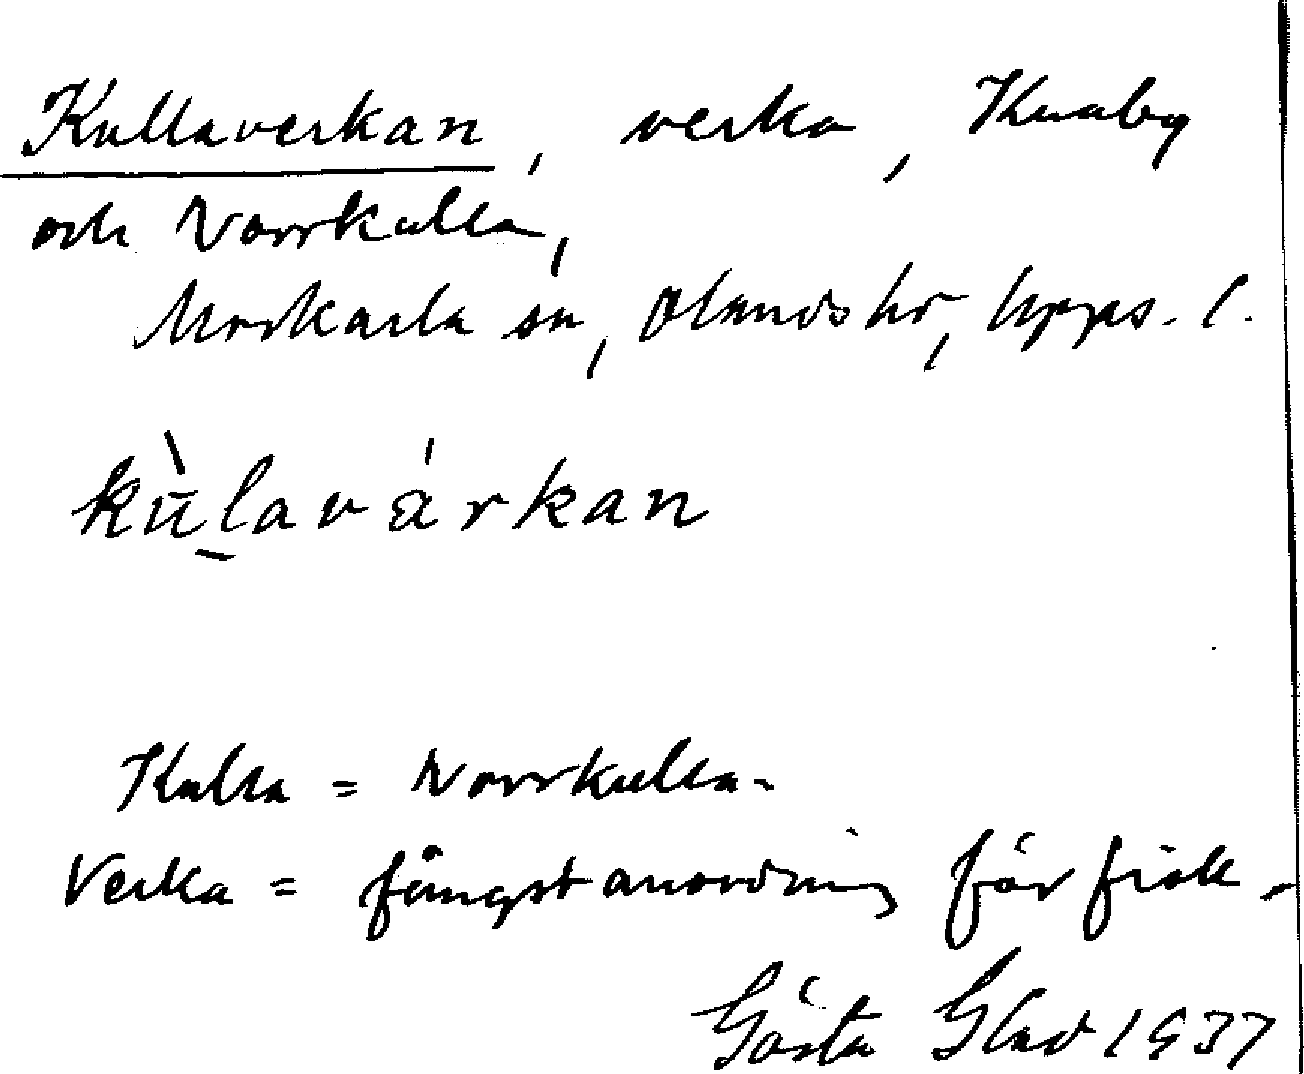 Kullaverkan, verka, Knaby
och Norrkulla,
Morkarla sn, Olands hd, Upps. l.
kùl̲avárkan
Kulla = Norrkulla.
Verka = fångstanordning för fisk.
Gösta Glad 1937